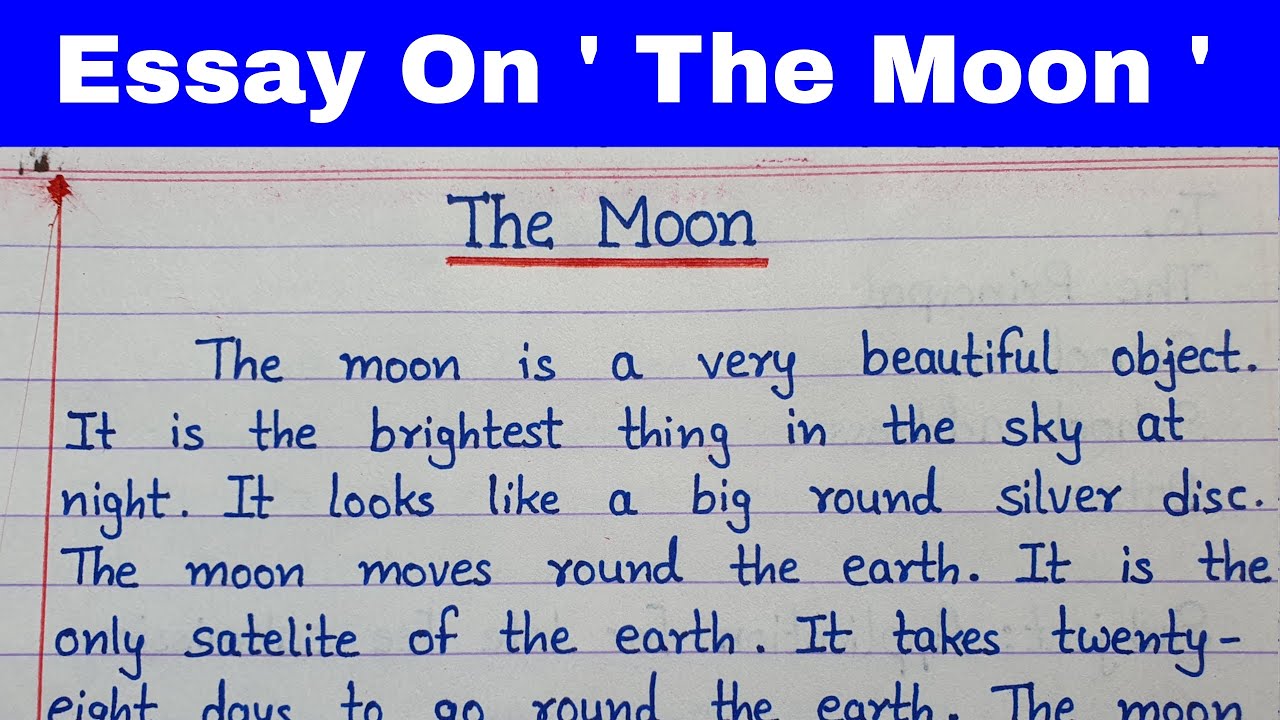 Essay On ' The Moon '
The Moon
The moon is a very beautiful object.
It is the brightest thing in the sky at
night. It looks like a big round silver disc.
The moon moves round the earth. It is the
only satelite of the earth. It takes twenty-
eight days to go round the earth. The moon
The Principal